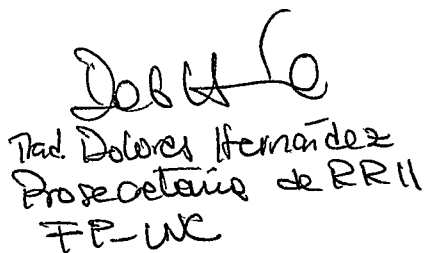 Trad. Dolores Hernández
Prosecretaria de RRII
FP-UNC